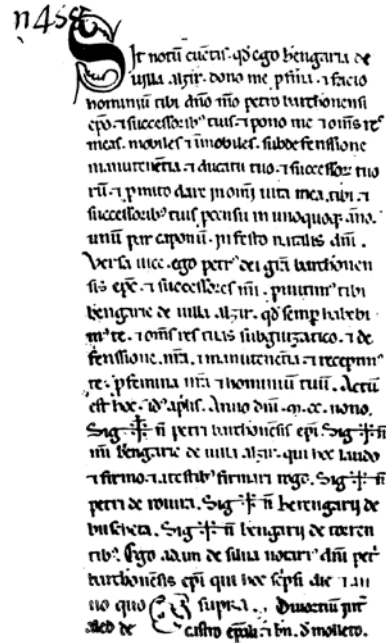 n458
Sit notū cūctis. qđ ego b̄engaria de
uilla alzir. dono me ꝓ femina. ⁊ facio
hominiū tibi dño mō petro barchonensi
ep̄o. ⁊ successoribꝰ tuis ⁊ pono me ⁊ om̄s res
meas. mobiles ⁊ īmobiles. sub defenssione
manutenētia ⁊ ducatu tuo. ⁊ successor tuo
rū. ⁊ ꝓmito dare in om̄i uita mea. tibi. ⁊
successoribꝰ tuis ꝑ censu in unoquoqꝫ. ano.
unū par caponū. in festo natalis dn̄i.
Versa uice. ego petrꝰ dei gr̄a barchonen
sis epc̄ ⁊ successores mi. ꝓmitimꝰ tibi
bengarie de uilla alzir. qđ semꝑ habebi
mꝰ te. ⁊ om̄s res tuas sub guizatico. ⁊ de
fenssione. nr̄a. ⁊ manutenētia. ⁊ recepimꝰ
te. ꝑ femina nr̄a ⁊ hominiū tuū. Actū
est hoc. idꝰ aꝑlis. Anno dn̄i. m̊. cc̊. nono.
Sig ✝ n̄ petri barchonēsis epi. Sig ✝ n̄
mī bengarie de uilla alzir. qui hoc laudo
⁊ firmo. ⁊ a testibꝰ firmari rogo. Sig ✝ n̄
petri de rouira. Sig ✝ n̄ berengarij de
buscheta. Sig ✝ n̄ bengarij de toren
tibꝰ. Ego adam de silua notariꝰ dn̄i petri
barchonēsis epi qui hoc scpsi die ⁊ an
no quo supra.
castro epali ⁊ bn̄. d molleto.